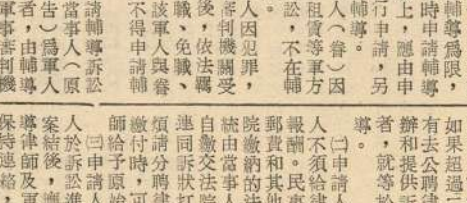 輔導爲限，
時申請輔導
上，應由申
行申請，另
輔導。
人（眷）因
租賃等軍方
訟，不在輔
人因犯罪，
審判機關受
後，依法羈
職、免職、
該軍人與眷
不得申請輔
請輔導訴訟
當事人（原
告）爲軍人
者，由輔導
軍事審判機
如果超過
有去公聘律
辦和提供訴
者，就等於
導。
㈡申請人
人不須給律
報酬。民事
郵費和其他
院繳納的法
統由當事人
自繳交法院
連同訴狀打
煩請分聘律
繳付時，可
師給予原始
㈢申請人
人於訴訟進
案結後，應
導律師及軍
保持連絡，